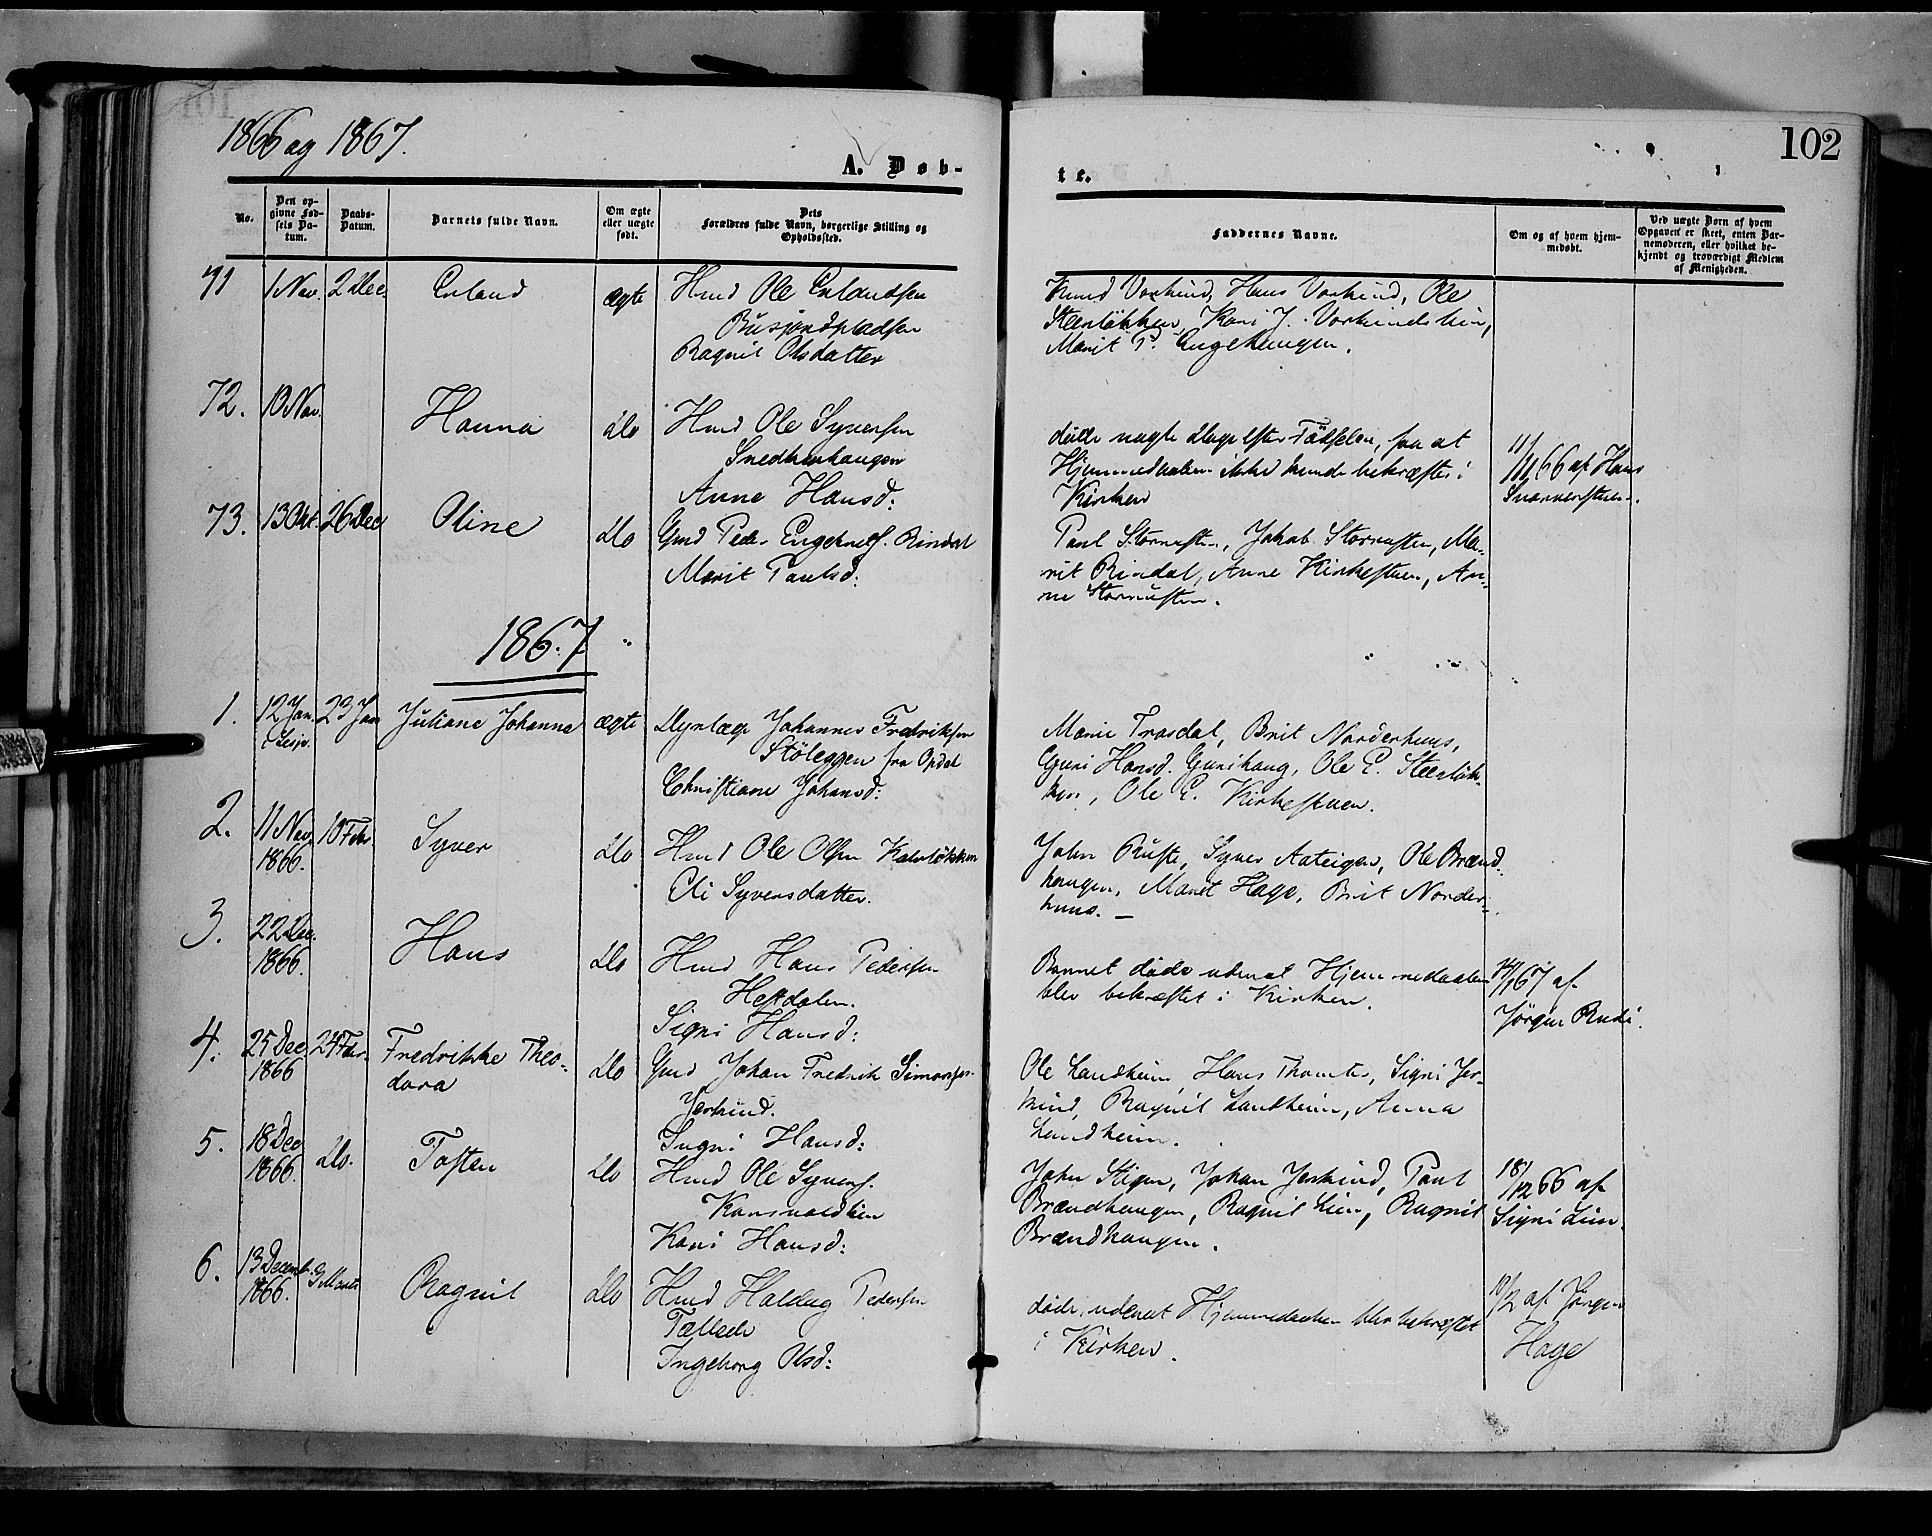 1866 og 1867.
102
A. Døb-
te.
No.
Den opgivne Fødsels Datum.
Daabs-Datum.
Barnets fulde Navn.
Om ægte eller uægte født.
Dets Forældres fulde Navn, borgerlige Stilling og Opholdssted.
Faddernes Navne.
Om og af hvem hjemmedøbt.
Ved uægte Børn af hvem Opgaven er skeet, enten Barnemoderen, eller hvilket bekjendt og troværdigt Medlem af Menigheden.
71 1 Nov. 2 Dec. Erland ægte Hmd Ole Erlandsen
Busjordpladsen
Ragnil Olsdatter
Knud Vorkind, Hans Vorkind, Ole
Steenløkken, Kari J. Vorkindslien,
Marit P. Engehaugen.
72. 10 Nov. Hanna Do Hmd Ole Syversen
Snedkerhaugen
Anne Hansd:
døde nogle Dage efter Fødselen, før at
Hjemmedaaben ikke kunde bekræftes i
Kirken
11/11 66 af Hans
73. 13 Okt. 26 Dec Oline Do Gmd Peder Engebrets. Rindal
Marit Paulsd:
Paul Stornusten, Jakob Stornusten, Ma-
rit Rindal, Anne Kirkestuen, An-
ne Stornusten.
1867
1. 12 Jan. 23 Jan Juliane Johanna ægte Johannes Fredriksen
Stöleggen fra Opdal
Christiane Johansd:
Marie Trosdal, Brit Norderhuus,
Guri Hansd. Gunihaug, Ole E. Steenløk-
ken, Ole E. Kirkestuen.
2. 11 Nov. 1866. 10 Febr Syver Do Hmd Ole Olsen
Eli Syversdatter.
John Ruste, Syver Aateigen, Ole Brænd-
haugen, Marit Hage, Brit Norder-
huus. —
3. 22 Dec. 1866. Hans Do Hmd Hans Pedersen
Hestdalen.
Signi Hansd:
Barnet døde uden at Hjemmedaaben
blev bekræftet i Kirken.
/1 67 af
Jørgen Rudi.
4. 25 Dec 1866 24 Febr. Fredrikke Theo-
dora Do Gmd Johan Fredrik Simonsen
Jerkind.
Signi Hansd:
Ole Landheim, Hans Thomter, Signi Jer-
kind, Ragnil Landheim, Anna
Landheim.
5. 18 Dec 1866. Do. Tosten Do Hmd Ole Syvers.
Kongsvoldlien
Kari Hansd:
John Stigen, Johan Jerkind, Paul
Brændhaugen, Ragnil Lien, Ragnil
Brændhaugen.
18/12 66 af
Signi Lien.
6. 13 Decemb. 1866. 3 Marts Ragnil Do Hmd Haldug Pedersen
Tallerås
Ingeborg Olsd:
døde, uden at Hjemmedaaben blev bekræftet
i Kirken.
10/2 af Jørgen
Hage